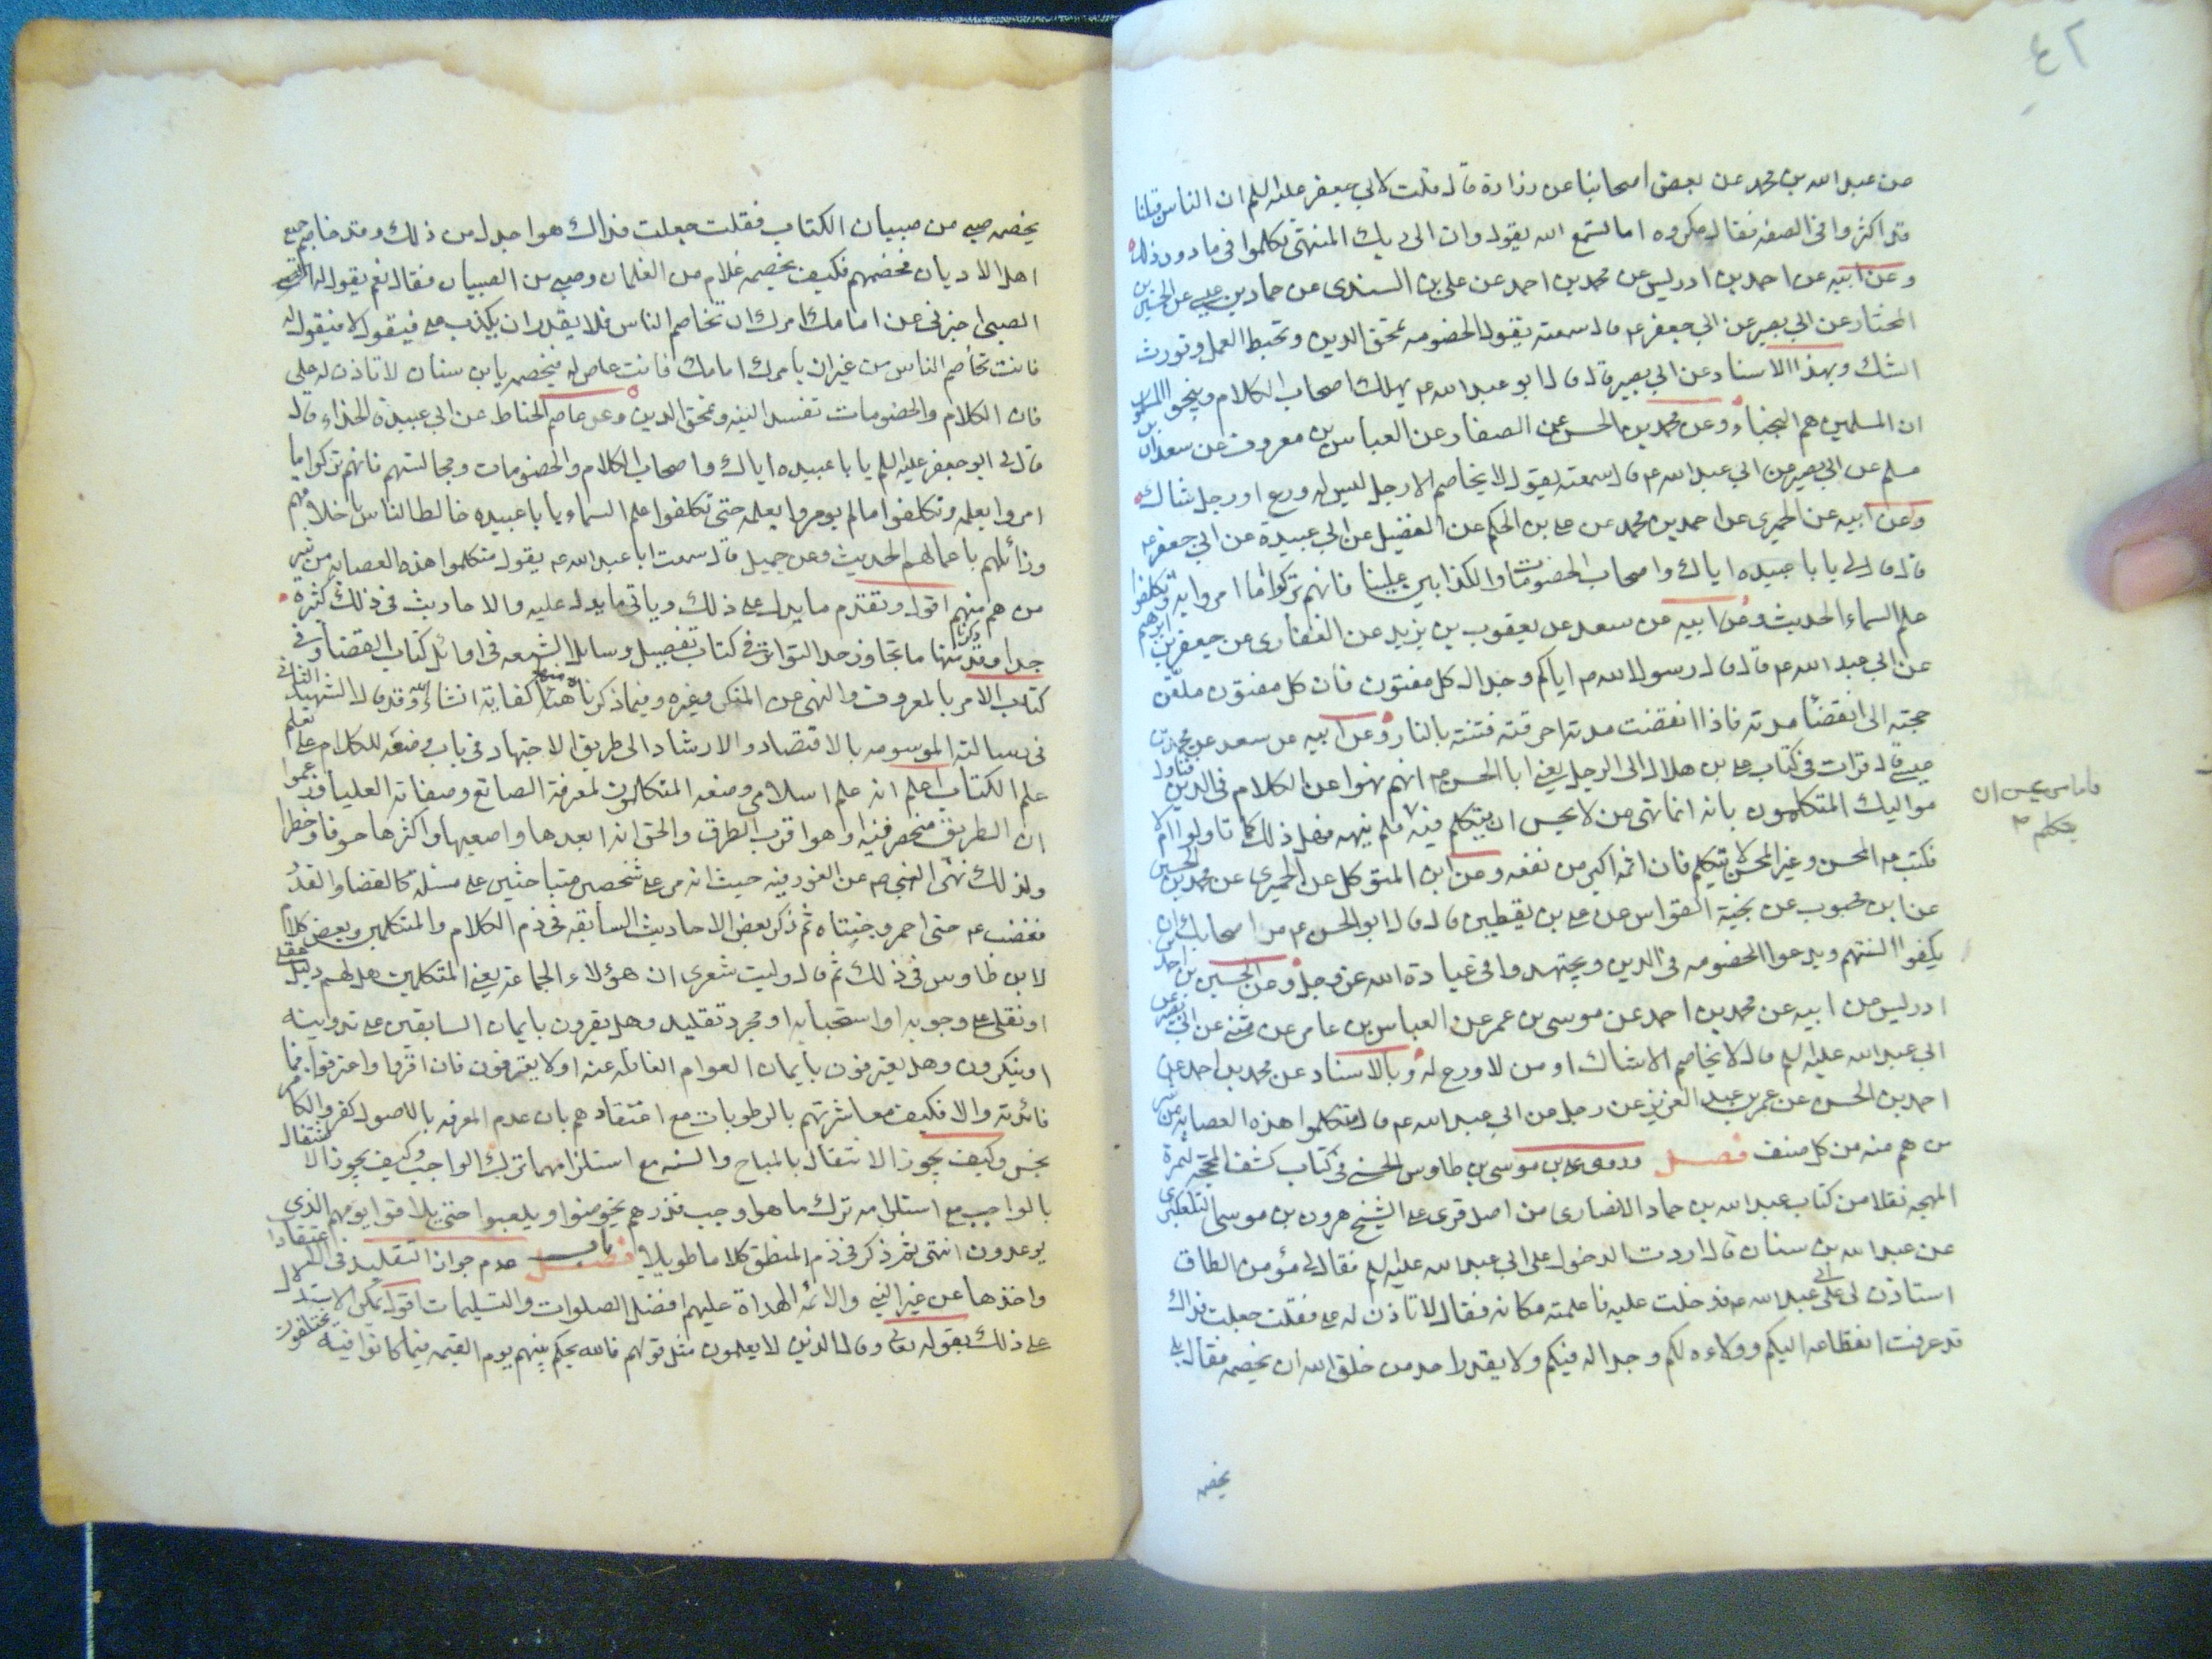 ٤٢
عن عبد الله بن محمد عن بعض اصحابنا عن زرارة قال قلت لابي جعفر عليه السلم ان الناس قبلنا
قد اكثروا في الصفه فقال مكروه اما تسمع الله يقول وان الى ربك المنتهى تكلموا في ما دون ذلك
وعن ابيه عن احمد بن ادريس عن محمد بن احمد عن علي بن السندي عن حماد بن عيسى عن الحسين بن
المختار عن ابي بصير عن ابي جعفر ع قال سمعته يقول الخصومه تمحق الدين وتحبط العمل وتورث
الشك وبهذا الاسناد عن ابي بصير قال قال ابو عبد الله ع يهلك اصحاب الكلام وينجو المسلمون
ان المسلمين هم النجباء وعن محمد بن الحسن عن الصفار عن العباس بن معروف عن سعدان بن
مسلم عن ابي بصير عن ابي عبد الله ع قال سمعته يقول لا يخاصم الا رجل ليس له ورع او رجل شاك
وعن ابيه عن الحميري عن احمد بن محمد عن علي بن الحكم عن الفضيل عن ابي عبيدة عن ابي جعفر ع
قال قال لي يا با عبيده اياك واصحاب الخصومات والكذابين علينا فانهم تركوا ما امروا به وتكلفوا
علم السماء الحديث وعن ابيه عن سعد عن يعقوب بن يزيد عن الغفاري عن جعفر بن ابرهيم
عن ابي عبد الله ع قال قال رسول الله ص اياكم وجدال كل مفتون فان كل مفتون ملقن
حجته الى انقضا مدته فاذا انقضت مدته احرقته فتنته بالنار وعن ابيه عن سعد عن محمد بن
عيسى قال قرات في كتاب علي بن هلال الى الرجل يعني ابا الحسن ع انهم نهوا عن الكلام في الدين فتاول
مواليك المتكلمون بانه انما نهى من لا يحسن ان يتكلم فيه فلم ينهه فهل ذلك كما تاولوا ام لا
فاما من يحسن ان
يتكلم
فكتب ع المحسن وغير المحسن لا يتكلم فان اثمه اكبر من نفعه وعن ابن المتوكل عن الحميري عن محمد بن الحسين
عن ابن محبوب عن نجية القواس عن علي بن يقطين قال قال ابو الحسن ع مر اصحابك ان
يكفوا السنتهم ويدعوا الخصومه في الدين ويجتهدوا في عبادة الله عز وجل وعن الحسين بن احمد بن
ادريس عن ابيه عن محمد بن احمد عن موسى بن عمر عن العباس بن عامر عن مثنى عن ابي بصير عن
ابي عبد الله عليه السلم قال لا يخاصم الا شاك او من لا ورع له وبالاسناد عن محمد بن احمد عن
احمد بن الحسن عن عمر بن عبد العزيز عن رجل عن ابي عبد الله ع قال متكلموا هذه العصابه من شر
من هم منه من كل صنف فصل وروى علي بن موسى بن طاوس الحسني في كتاب كشف المحجه لثمرة
المهجه نقلا من كتاب عبد الله بن حماد الانصاري من اصل قرى على الشيخ هرون بن موسى التلعكبري
عن عبد الله بن سنان قال اردت الدخول على ابي عبد الله عليه السلم فقال لي مؤمن الطاق
استاذن لي على ابي عبد الله ع فدخلت عليه فاعلمته مكانه فقال لا تاذن له علي فقلت جعلت فداك
قد عرفت انقطاعه اليكم وولاءه لكم وجداله فيكم ولا يقدر احد من خلق الله ان يخصمه فقال بلى
يخصمه
يخصمه صبي من صبيان الكتاب فقلت جعلت فداك هو اجدل من ذلك وقد خاصم جميع
اهل الاديان فخصمهم فكيف يخصمه غلام من الغلمان وصبي من الصبيان فقال نعم يقول له
الصبي اخبرني عن امامك امرك ان تخاصم الناس فلا يقدر ان يكذب علي فيقول لا فيقول له
فانت تخاصم الناس من غير ان يامرك امامك فانت عاص له فيخصمه يا بن سنان لا تاذن له علي
فان الكلام والخصومات تفسد النيه وتمحق الدين وعن عاصم الحناط عن ابي عبيدة الحذاء قال
قال لي ابو جعفر عليه السلم يا با عبيده اياك واصحاب الكلام والخصومات ومجالستهم فانهم تركوا ما
امروا بعلمه وتكلفوا ما لم يومروا بعلمه حتى تكلفوا علم السماء يا با عبيده خالط الناس باخلاقهم
وزائلهم باعمالهم الحديث وعن جميل قال سمعت ابا عبد الله ع يقول متكلموا هذه العصابه من شر
من هم منهم اقول وتقدم ما يدل على ذلك وياتي ما يدل عليه والاحاديث في ذلك كثيره
جدا وقد ذكرنا منها ما تجاوز حد التواتر في كتاب تفصيل وسايل الشيعه في اوائل كتاب القضا وفي
كتاب الامر بالمعروف والنهي عن المنكر وغيره وفيما ذكرناه هنا منها كفاية انشاء الله وقد قال الشهيد الثاني
في رسالته الموسومه بالاقتصاد والارشاد الى طريق الاجتهاد في باب وضعه للكلام على تعلم
علم الكتاب اعلم انه علم اسلامي وضعه المتكلمون لمعرفة الصانع وصفاته العليا وزعموا
ان الطريق منحصر فيه او هو اقرب الطرق والحق انه ابعدها واصعبها واكثرها خوفا وخطرا
ولذلك نهى النبي ص عن الغور فيه حيث انه مر على شخصين متباحثين على مسئلة كالقضا والقدر
فغضب ع حتى احمر وجنتاه ثم ذكر بعض الاحاديث السابقه في ذم الكلام والمتكلمين وبعض كلام
لابن طاوس في ذلك ثم قال وليت شعري ان هؤلاء الجماعة يعني المتكلمين هل لهم دليل عقلي
او نقلي على وجوبه او استحبابه او مجرد تقليد وهل يقرون بايمان السابقين على تدوينه
او ينكرون وهل يعترفون بايمان العوام الغافله عنه او لا يعترفون فان اقروا واعترفوا فما
فائدته والا فكيف معاشرتهم بالرطوبات مع اعتقادهم بان عدم المعرفه بالاصول كفر والكافر
نجس وكيف يجوز الاشتغال بالمباح والسنه مع استلزامهما ترك الواجب وكيف يجوز الاشتغال
بالواجب مع استلزامه ترك ما هو اوجب فذرهم يخوضوا ويلعبوا حتى يلاقوا يومهم الذي
يوعدون انتهى ثم ذكر في ذم المنطق كلاما طويلا فصل باب عدم جواز التقليد في الاعتقادات
واخذها عن غير النبي والائمه الهداة عليهم افضل الصلوات والتسليمات اقول يمكن الاستدلال
على ذلك بقوله تعالى وقال الذين لا يعلمون مثل قولهم فالله يحكم بينهم يوم القيمه فيما كانوا فيه يختلفون